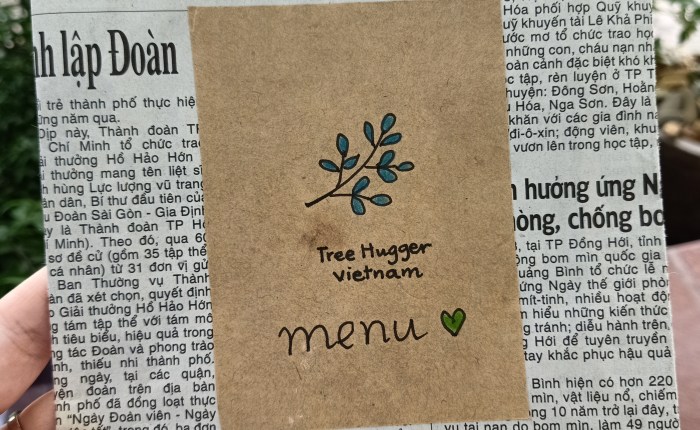 h lập Đoàn
trẻ thành phố thực hiệ
ng năm qua.
Dịp này, Thành đoàn TP
Chí Minh tổ chức trao
ải thưởng Hồ Hảo Hớn
i thưởng mang tên liệt sĩ
h hùng Lực lượng vũ trang
ân dân, Bí thư đầu tiên của
u Đoàn Sài Gòn - Gia Định
y là Thành đoàn TP Hồ
í Minh). Theo đó, qua 60
sơ đề cử (gồm 35 tập thể
cá nhân) từ 31 đơn vị gử
Ban Thường vụ Thành
àn đã xét chọn, quyết định
o Giải thưởng Hồ Hảo Hớn
g tám tập thể với tám mô
h tiêu biểu, hiệu quả trong
ng tác Đoàn và phong trào
nh, thiếu nhi thành phố.
ng ngày, tại các quận,
yện đoàn trên địa bàn
nh phố đã đồng loạt thực
n "Ngày Đoàn viên - Ngày
Tree Hugger
Vietnam
menu
Hóa phối hợp Quỹ khuy
uỹ khuyến tài Lê Khả Phi
ước mơ tổ chức trao họ
những con, cháu nạn nh
oàn cảnh đặc biệt khó kh
c tập, rèn luyện ở TP T
huyện: Đông Sơn, Hoằn
Hóa, Nga Sơn. Đây là
khăn với các gia đình n
đi-ô-xin; động viên, khu
vươn lên trong học tập,
hưởng ứng N
òng, chống bo
, tại TP Đồng Hới, tỉnh
ộng bom mìn quốc gia
uảng Bình tổ chức lễ n
ứng Ngày thế giới phòn
mít-tinh, nhiều hoạt độ
n hiểu những kiến thức
g tránh; diễu hành trên
g Hới để tuyên truyền
tay khắc phục hậu quả
Bình hiện có hơn 220
mìn, vật liệu nổ, chiếm
ng 10 năm trở lại đây, t
vụ tai nạn do bom mìn, làm 49 ngườ